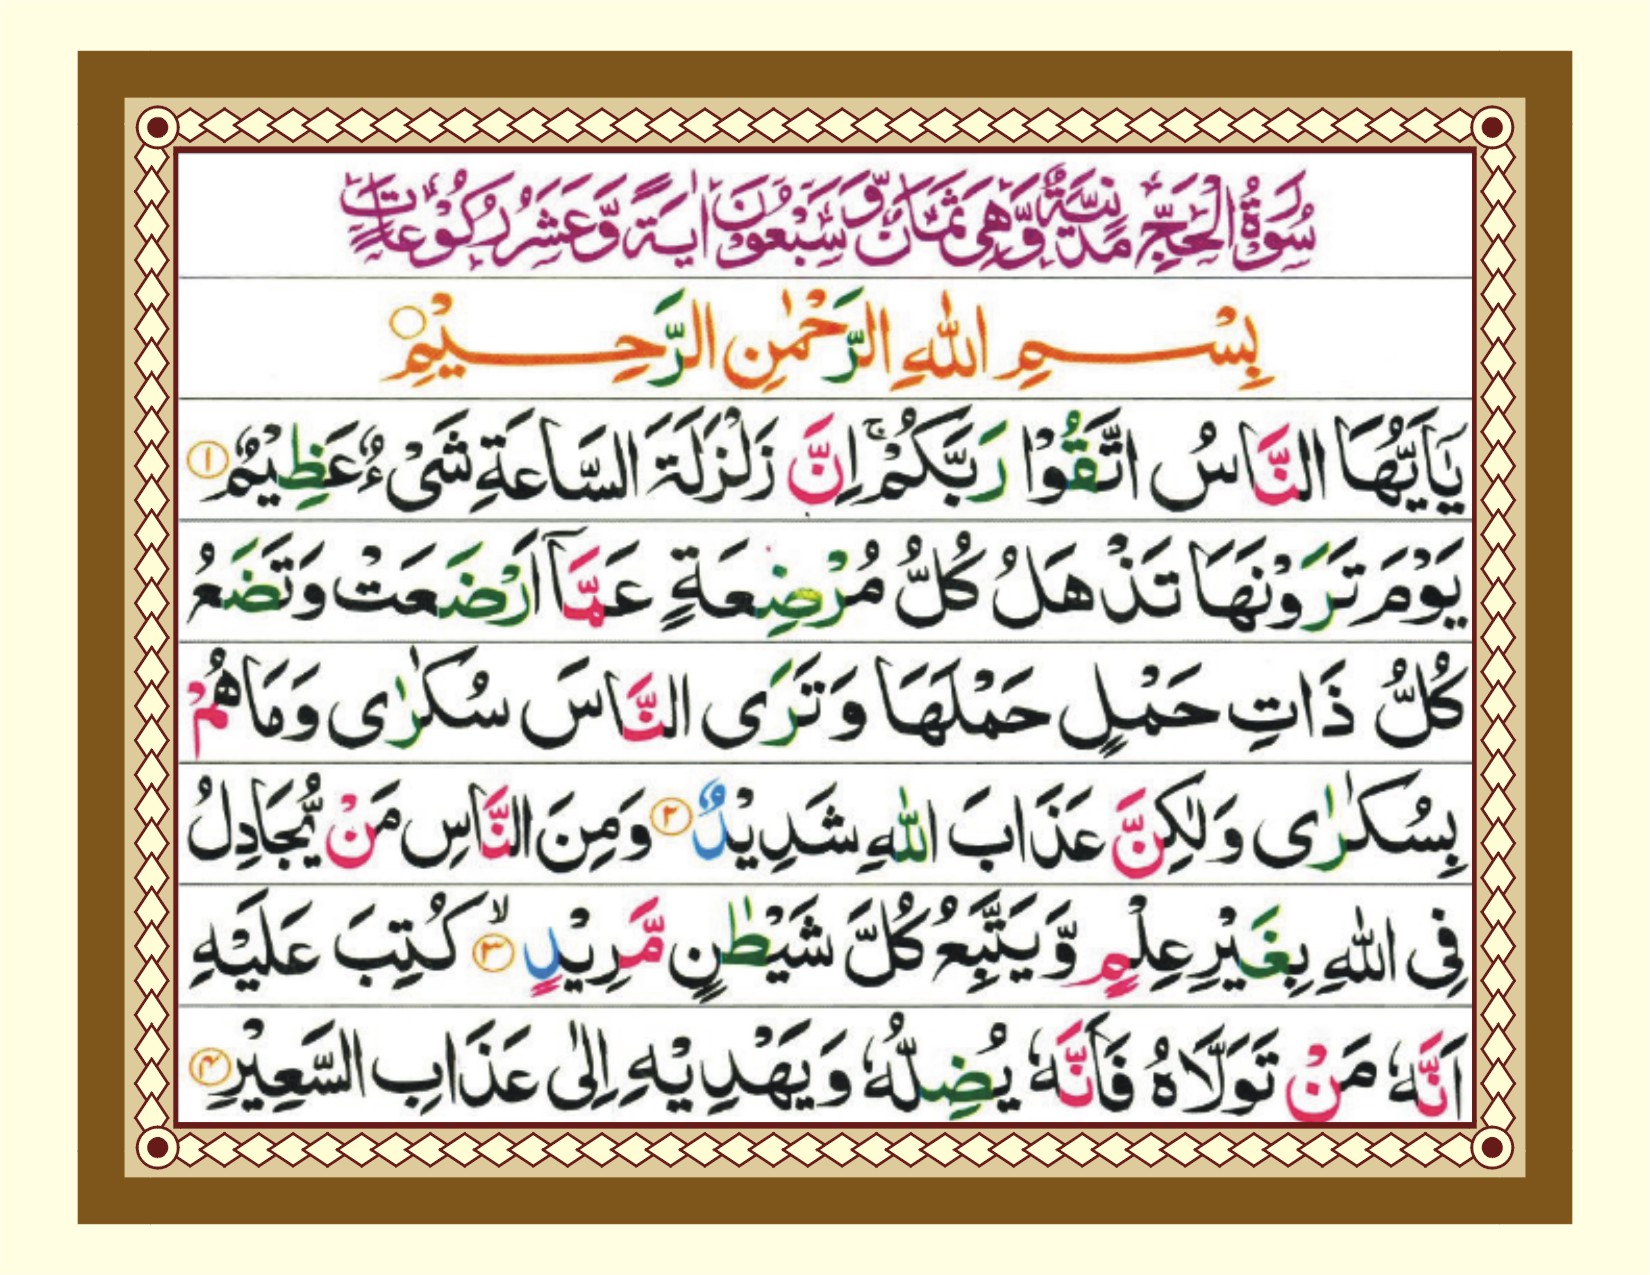 سُوْرَةُ الْحَجِّ مَدَنِيَّةٌ وَّهِيَ ثَمَانٌ وَّسَبْعُوْنَ اٰيَةً وَّعَشْرُ رُكُوْعَاتٍ
بِسْمِ اللّٰهِ الرَّحْمٰنِ الرَّحِيْمِ ○
يٰۤاَيُّهَا النَّاسُ اتَّقُوْا رَبَّكُمْ ۚ اِنَّ زَلْزَلَةَ السَّاعَةِ شَیْءٌ عَظِيْمٌ ۱
يَوْمَ تَرَوْنَهَا تَذْهَلُ كُلُّ مُرْضِعَةٍ عَمَّاۤ اَرْضَعَتْ وَتَضَعُ
كُلُّ ذَاتِ حَمْلٍ حَمْلَهَا وَتَرَی النَّاسَ سُكٰرٰی وَمَا هُمْ
بِسُكٰرٰی وَلٰكِنَّ عَذَابَ اللّٰهِ شَدِيْدٌ ۲ وَمِنَ النَّاسِ مَنْ يُّجَادِلُ
فِی اللّٰهِ بِغَيْرِ عِلْمٍ وَّيَتَّبِعُ كُلَّ شَيْطٰنٍ مَّرِيْدٍ ۙ ۳ كُتِبَ عَلَيْهِ
اَنَّهٗ مَنْ تَوَلَّاهُ فَاَنَّهٗ يُضِلُّهٗ وَيَهْدِيْهِ اِلٰی عَذَابِ السَّعِيْرِ ۴